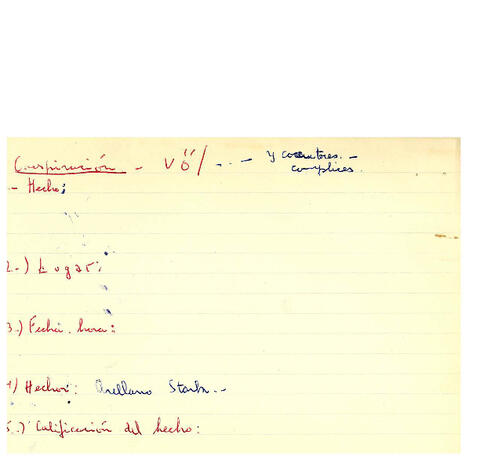 Conspiración - VÖ/ - . . - y coautores. -
complices.
- Hecho;
2.-) Lugar;
3.-) Fecha. hora:
4) Hechor: Arellano Stark. -
5.-) Calificación del hecho: